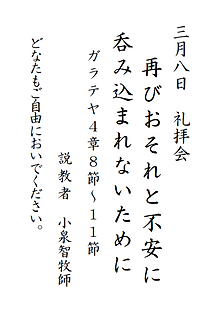 三月八日　礼拝会
再びおそれと不安に
呑み込まれないために
ガラテヤ４章８節～１１節
説教者　小泉智牧師
どなたもご自由においでください。